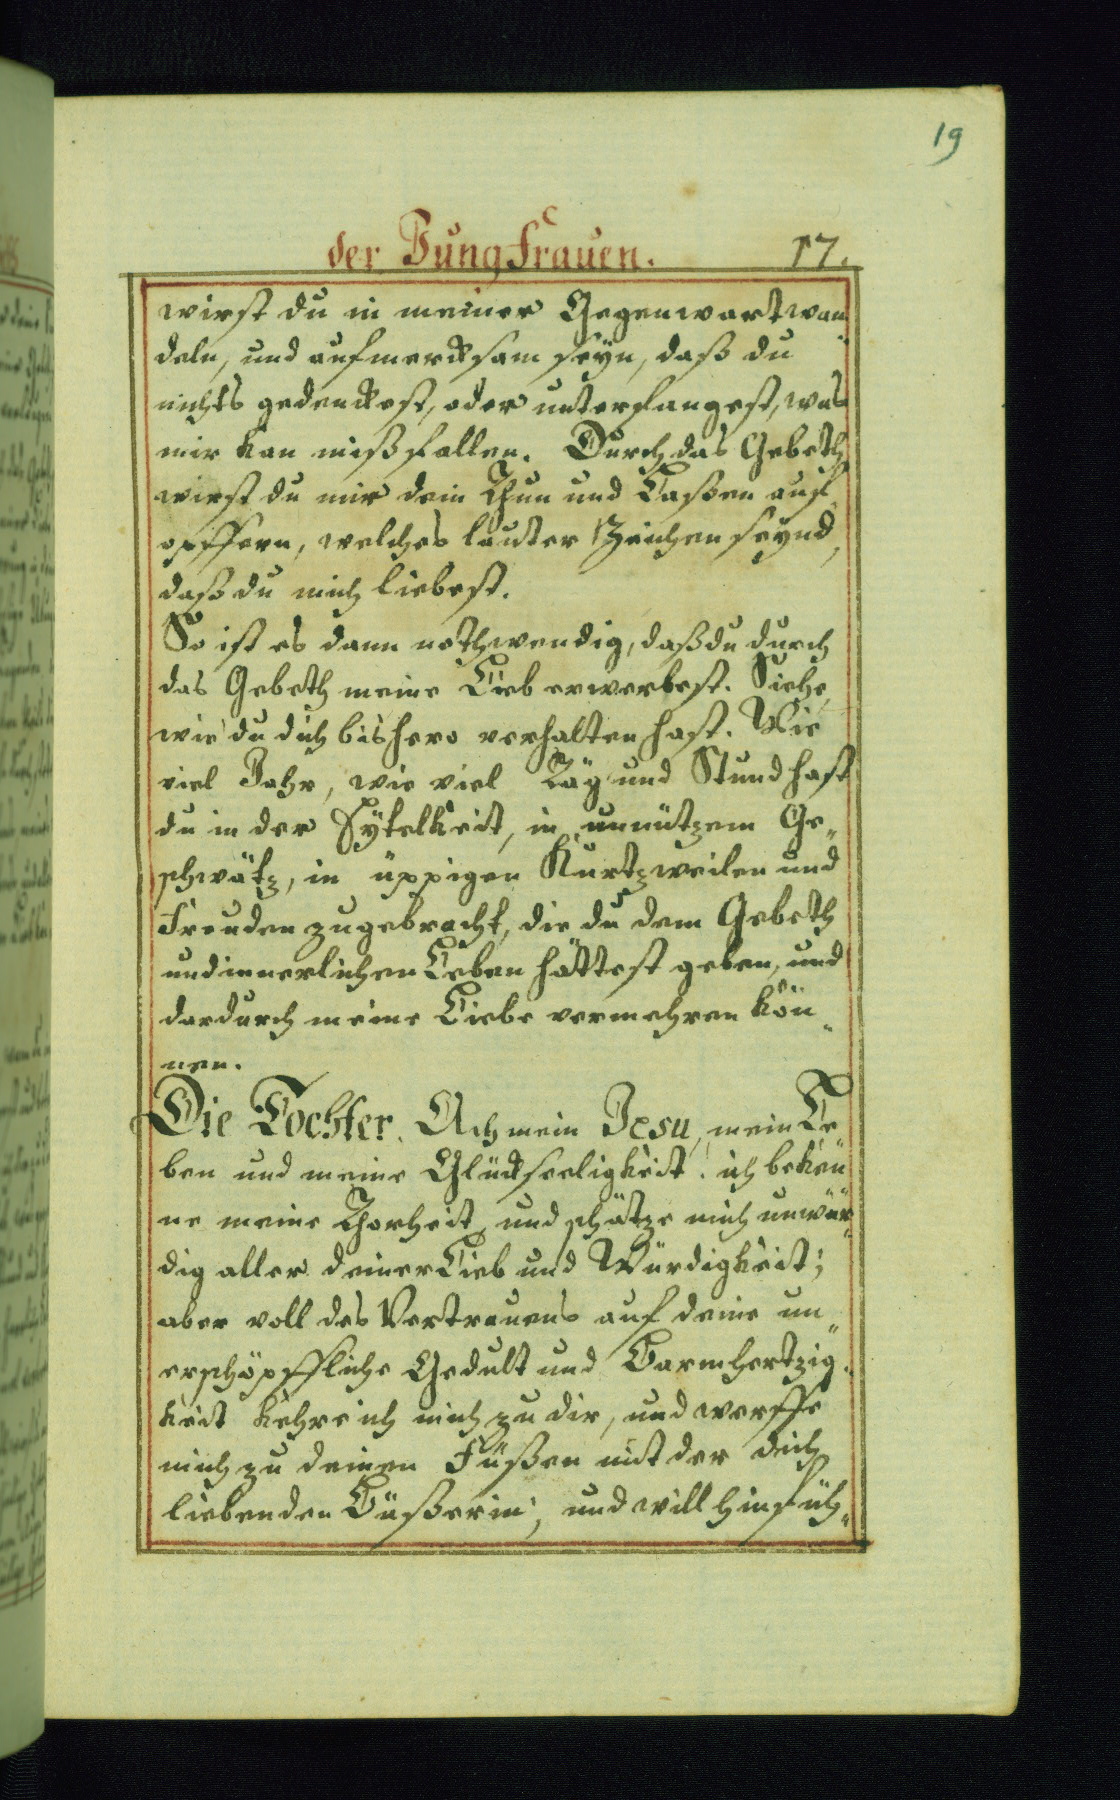 19
der Jungfrauen. 17.
wirst du in meiner Gegenwart wan„
deln, und aufmercksam seÿn, daß du
nichts gedenckest, oder unterfangest, was
mir kan mißfallen. Durch das Gebeth
wirst du mir dein Thun und Laßen auf„
opffern, welches lauter Zeichen seynd,
daß du mich liebest.
So ist es dann nothwendig, daß du durch
das Gebeth meine Lieb erwerbest. Siehe,
wie du dich bishero verhalten hast. Wie
viel Jahr, wie viel Täg und Stund hast
du in der Eÿtelkeit, in unnützem Ge„
schwätz, in üppigen Kurtzweilen und
Freuden zugebracht, die du dem Gebeth
und innerlichen Leben hättest geben, und
dardurch meine Liebe vermehren kön„
nen.
Die Tochter. Ach mein Jesu, mein Le„
ben und meine Glückseeligkeit! ich beken„
ne meine Thorheit, und schätze mich unwür„
dig aller deiner Lieb und Würdigkeit;
aber voll des Vertrauens auf deine un„
erschöpffliche Gedult und Barmhertzig„
keit kehre ich mich zu dir, und werffe
mich zu deinen Füßen mit der dich
liebenden Büßerin, und will hinfüh„